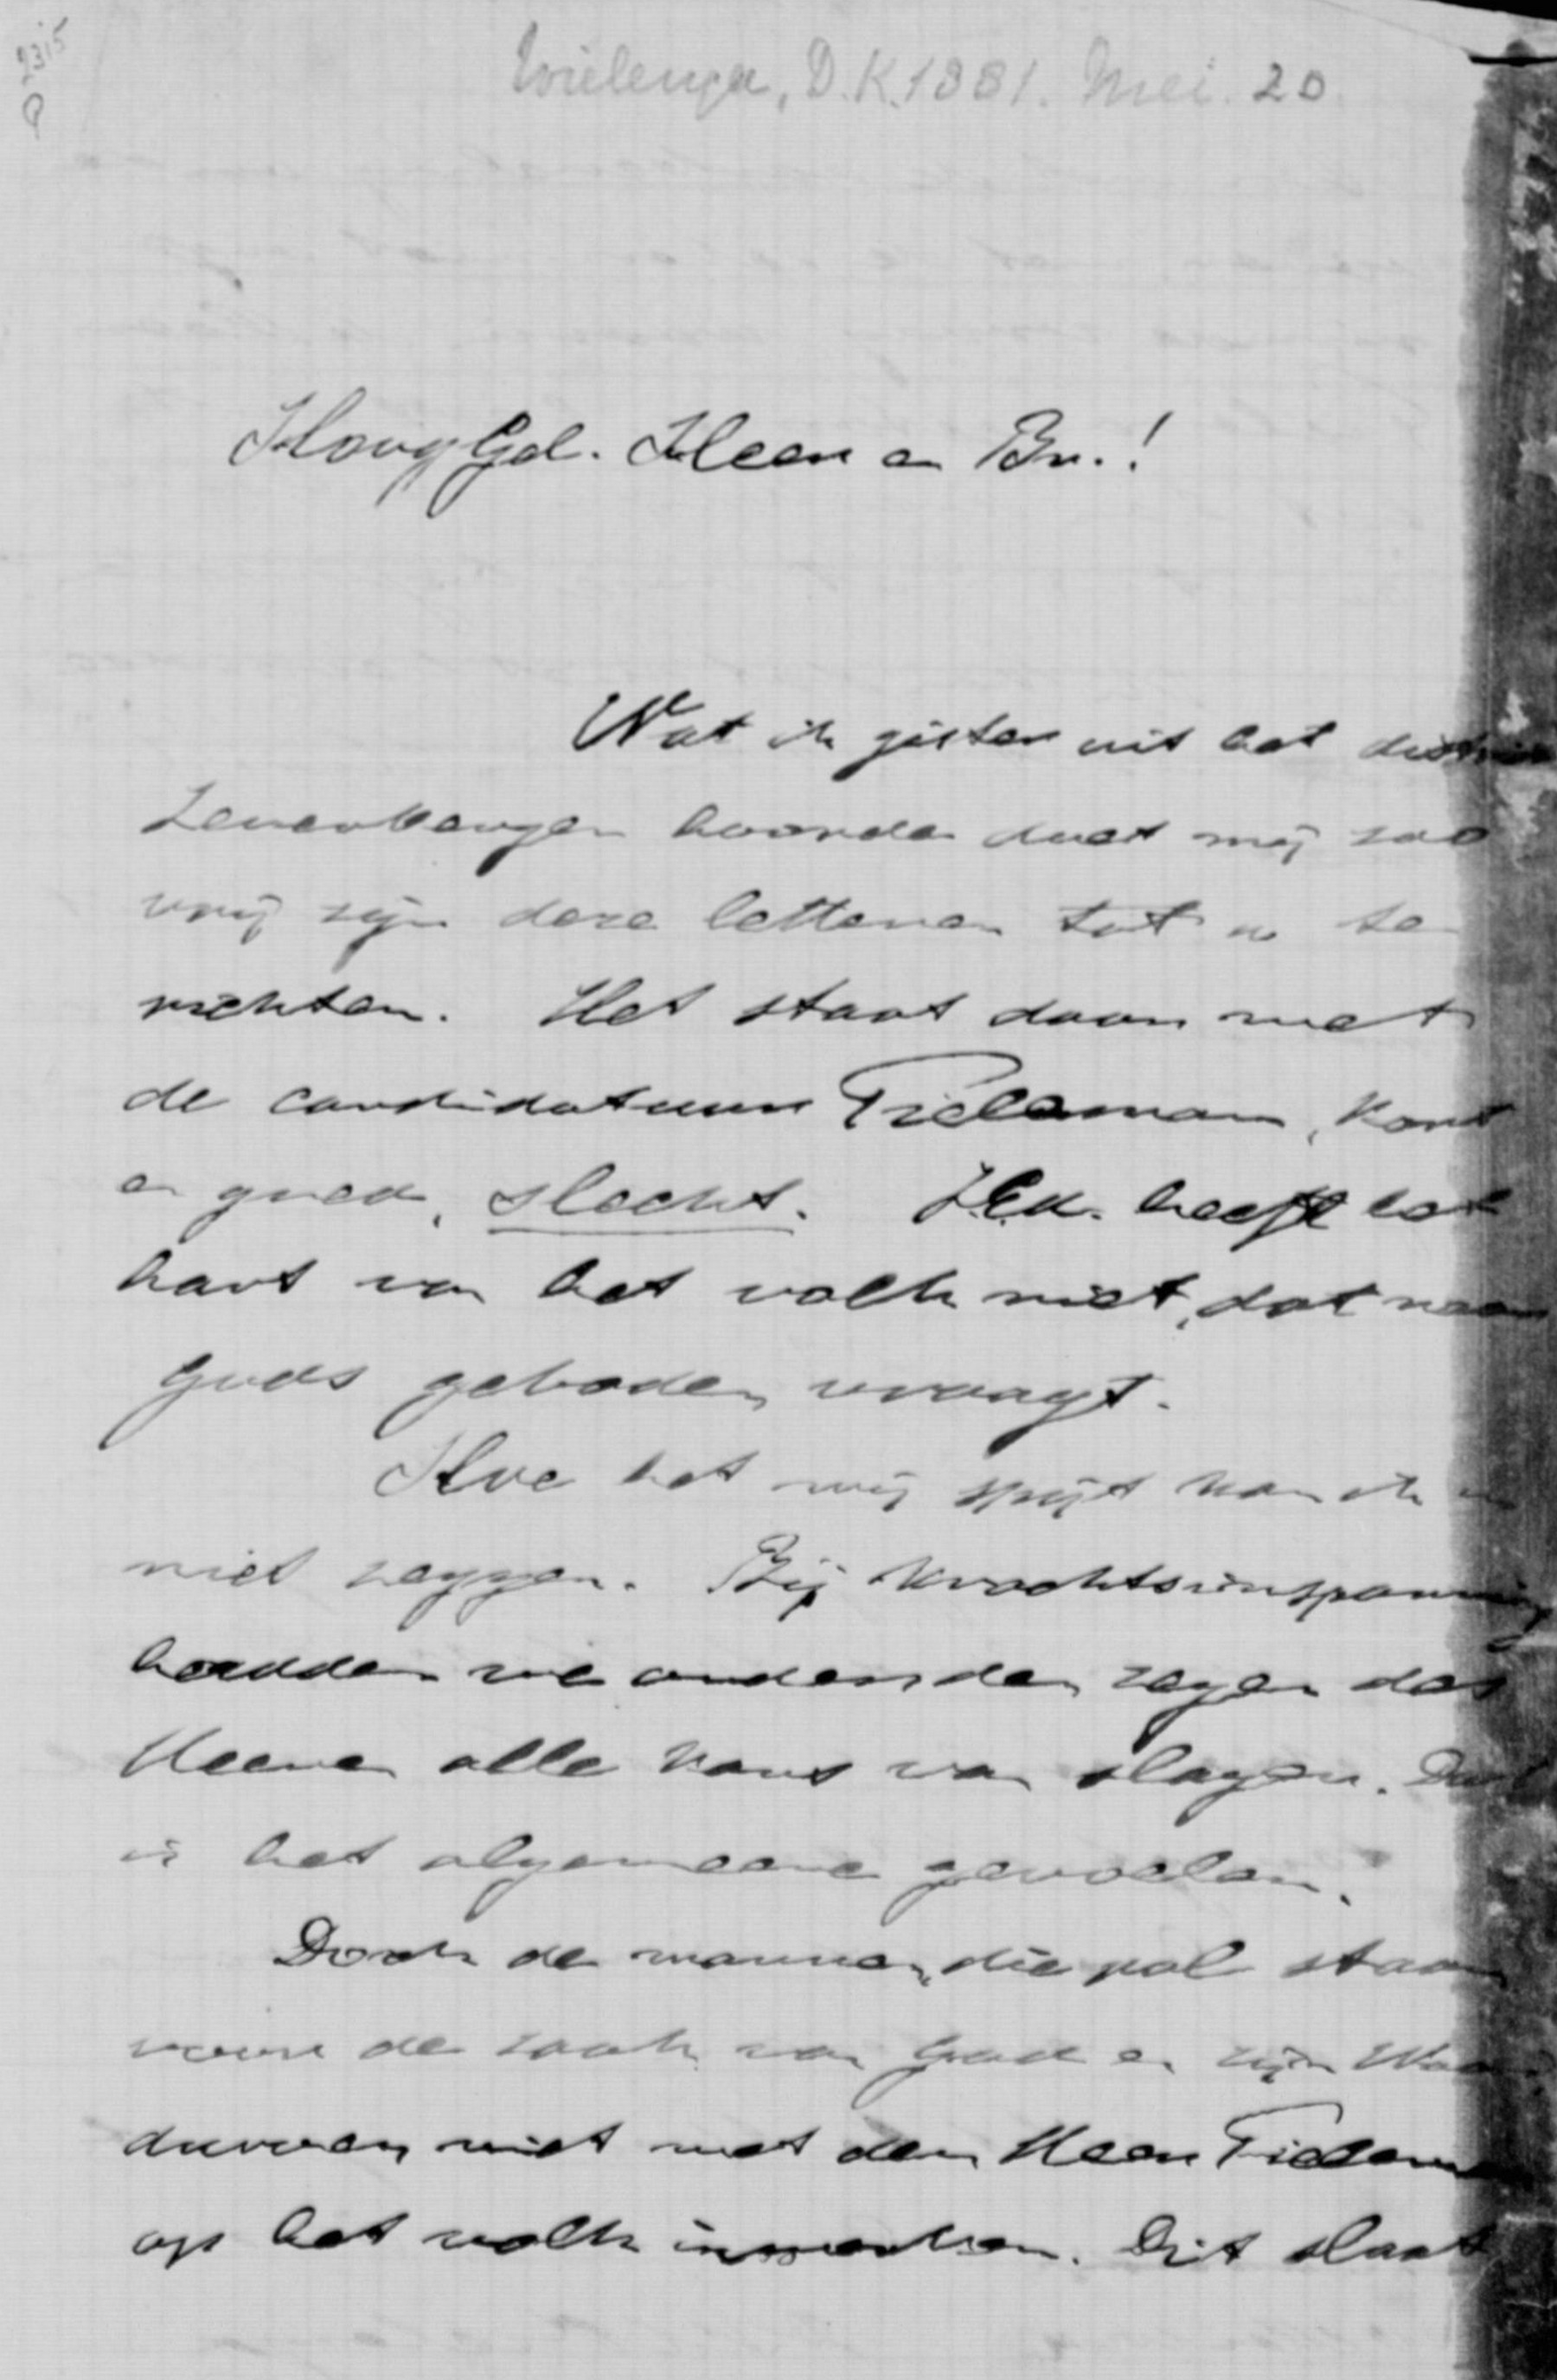 2315
Wielenga, D.K. 1881. Mei. 20
HoogGel. Heer en Br.!
Wat ik gister uit het district
Zevenbergen hoorde doet mij zoo
vrij zijn deze letteren tot u te
richten. Het staat daar met
de candidatuur Tieleman, kort
en goed, slecht. ZEd. heeft het
hart van het volk niet, dat naar
Gods geboden vraagt.
Hoe het mij spijt kan ik u
niet zeggen. Bij krachtsinspanning
hadden we onder den zegen des
Heeren alle kans van slagen. Dat
is het algemeene gevoelen.
Doch de mannen, die pal staan
voor de zaak van God en zijn Woord
durven niet met den Heer Tieleman
op het volk inwerken. Dit slaat